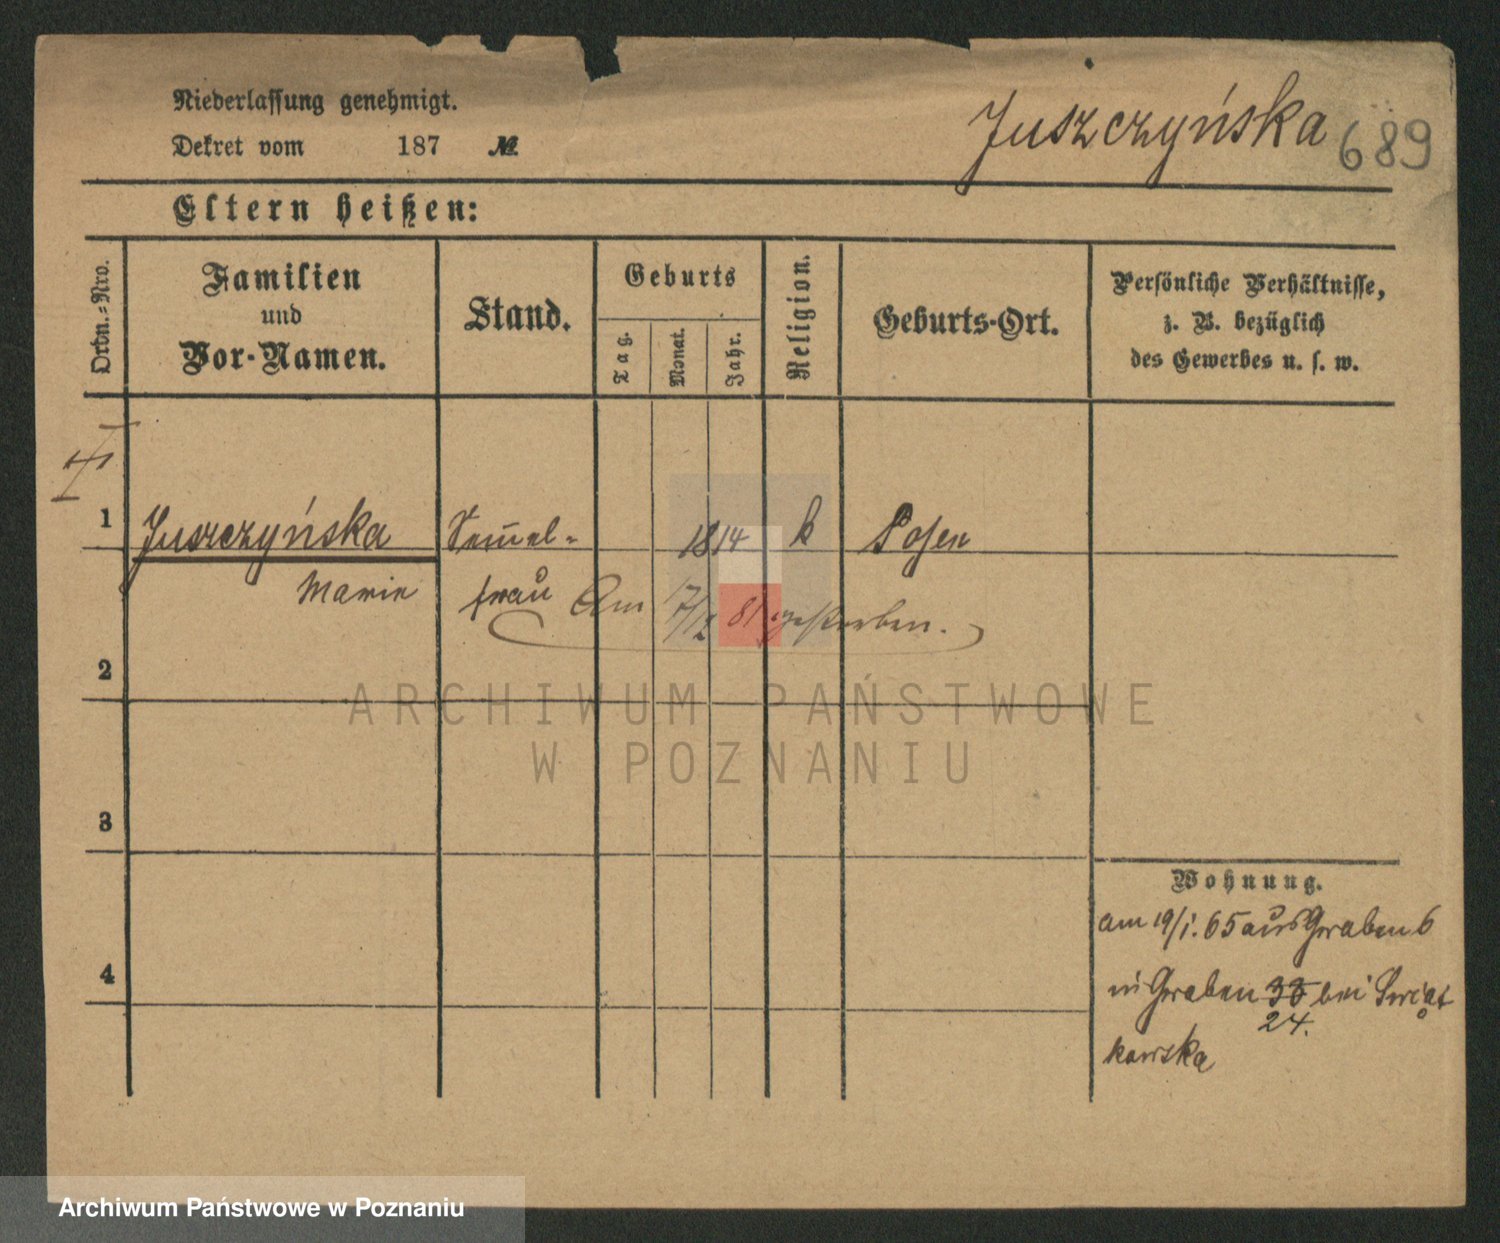 Niederlassung genehmigt.
Dekret vom 187 №
Juszczyńska 689
Eltern heißen:
Ordn.-Nro.
Familien
und
Vor-Namen.
Stand.
Geburts
Tag.
Monat.
Jahr.
Religion.
Geburts-Ort.
Persönliche Verhältnisse,
z. B. bezüglich
des Gewerbes u. s. w.
1 Juszczyńska Semel- 1814 k Posen
Marie frau Am 7/X 81 gestorben.
2
ARCHIWUM PAŃSTWOWE
W POZNANIU
3
4
Wohnung.
am 19/1. 65 aus Graben 6
in Graben 38 bei Świąt
24.
kowska
Archiwum Państwowe w Poznaniu